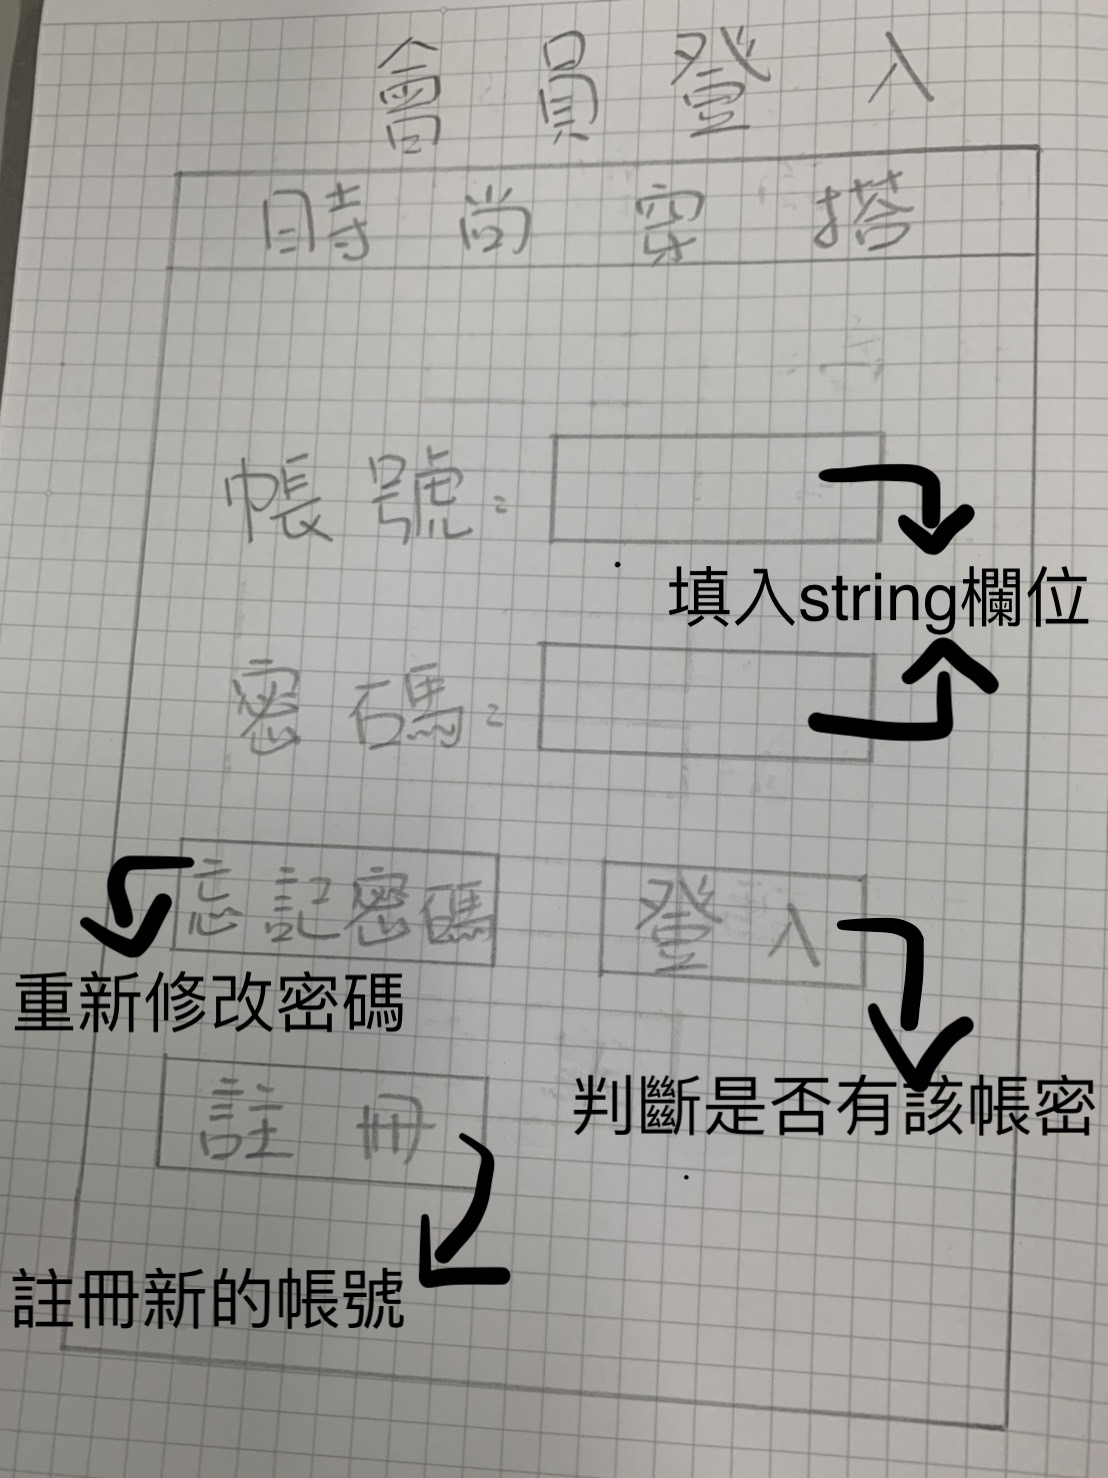 會員登入
時尚穿搭
帳號:
填入string欄位
密碼:
忘記密碼 登入
重新修改密碼
判斷是否有該帳密
註冊
註冊新的帳號